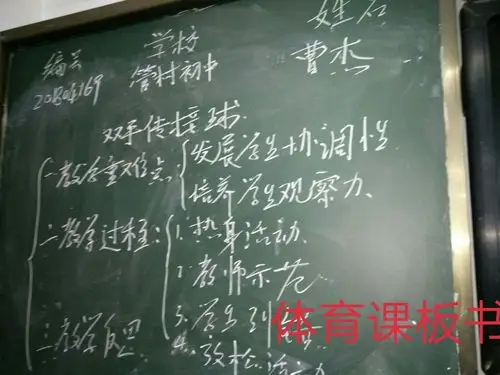 编号 学校 姓名
201804169 管村初中 曹杰
双手传接球
一教学重难点 发展学生协调性
培养学生观察力
二教学过程: 1、热身活动
2 教师示范
三教学反思 3、学生
4、放松活动
体育课板书